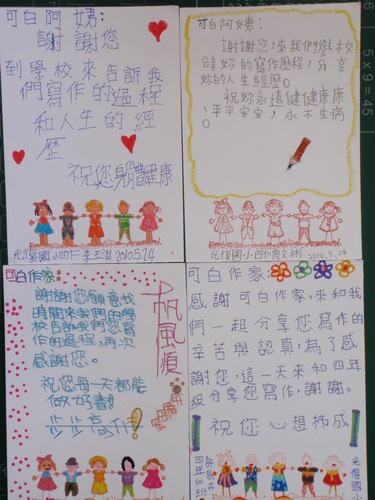 可白阿姨:
謝謝您
到學校來告訴我
們寫作的過程
和人生的經
歷
祝您身體健康
光復國小四仁李玉淇2010.5.24
可白阿姨:
謝謝您,來我們學校
分享妳的寫作歷程,分享
妳的人生經歷。
祝妳永遠健健康康
、平平安安,永不生病
。
光復國小四仁 文彬
2010.5.24
可白作家:
謝謝您願意找
時間來我們的學
校告訴我們您寫
作的過程,再次
感謝您。
祝您每一天都能
做好書!
步步高升!
帆風順
可白作家
感謝可白作家,來和我
們一起分享您寫作的
辛苦與認真,為了感
謝您,這一天來和四年
級分享您寫作,謝謝。
祝您心想柿成
四年仁班
光復國小
5×9=45
6